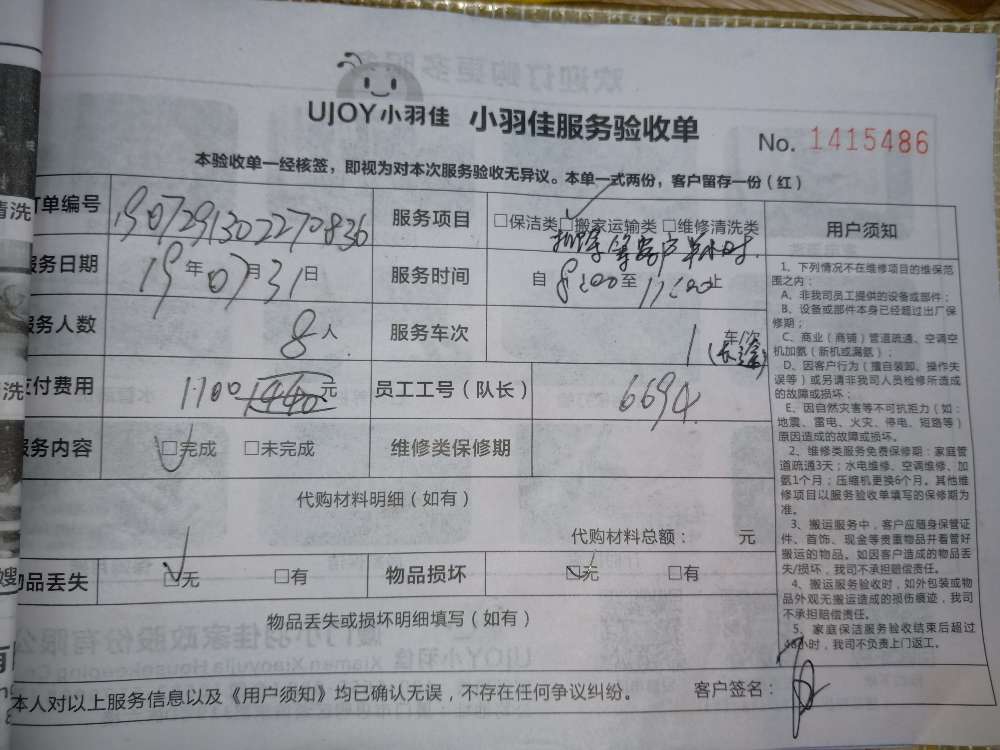 UJOY小羽佳 小羽佳服务验收单
No. 1415486
本验收单一经核签，即视为对本次服务验收无异议。本单一式两份，客户留存一份（红）
订单编号 1907291302270836 服务项目 □保洁类 □搬家运输类 □维修清洗类 用户须知
等客户半小时.
服务日期 19年07月31日 服务时间 自 8:00 至 11:00 止
服务人数 8人 服务车次 1 车/次
(长途)
支付费用 1100 1440 元 员工工号（队长） 6694
服务内容 □完成 □未完成 维修类保修期
代购材料明细（如有）
代购材料总额： 元
物品丢失 □无 □有 物品损坏 □无 □有
物品丢失或损坏明细填写（如有）
1、下列情况不在维修项目的维保范
围之内：
A、非我司员工提供的设备或部件；
B、设备或部件本身已经超过出厂保
修期；
C、商业（商铺）管道疏通、空调空
机加氨（新机或漏氨）；
D、因客户行为（擅自装卸、操作失
误等）或另请非我司人员检修所造成
的故障或损坏；
E、因自然灾害等不可抗拒力（如：
地震、雷电、火灾、停电、短路等）
原因造成的故障或损坏。
2、维修类服务免费保修期：家庭管
道疏通3天；水电维修、空调维修、加
氨1个月；压缩机更换6个月。其他维
修项目以服务验收单填写的保修期为
准。
3、搬运服务中，客户应随身保管证
件、首饰、现金等贵重物品并看管好
搬运的物品。如因客户造成的物品丢
失/损坏，我司不承担赔偿责任。
4、搬运服务验收时，如外包装或物
品外观无搬运造成的损伤痕迹，我司
不承担赔偿责任。
5、家庭保洁服务验收结束后超过
48小时，我司不负责上门返工。
本人对以上服务信息以及《用户须知》均已确认无误，不存在任何争议纠纷。 客户签名：